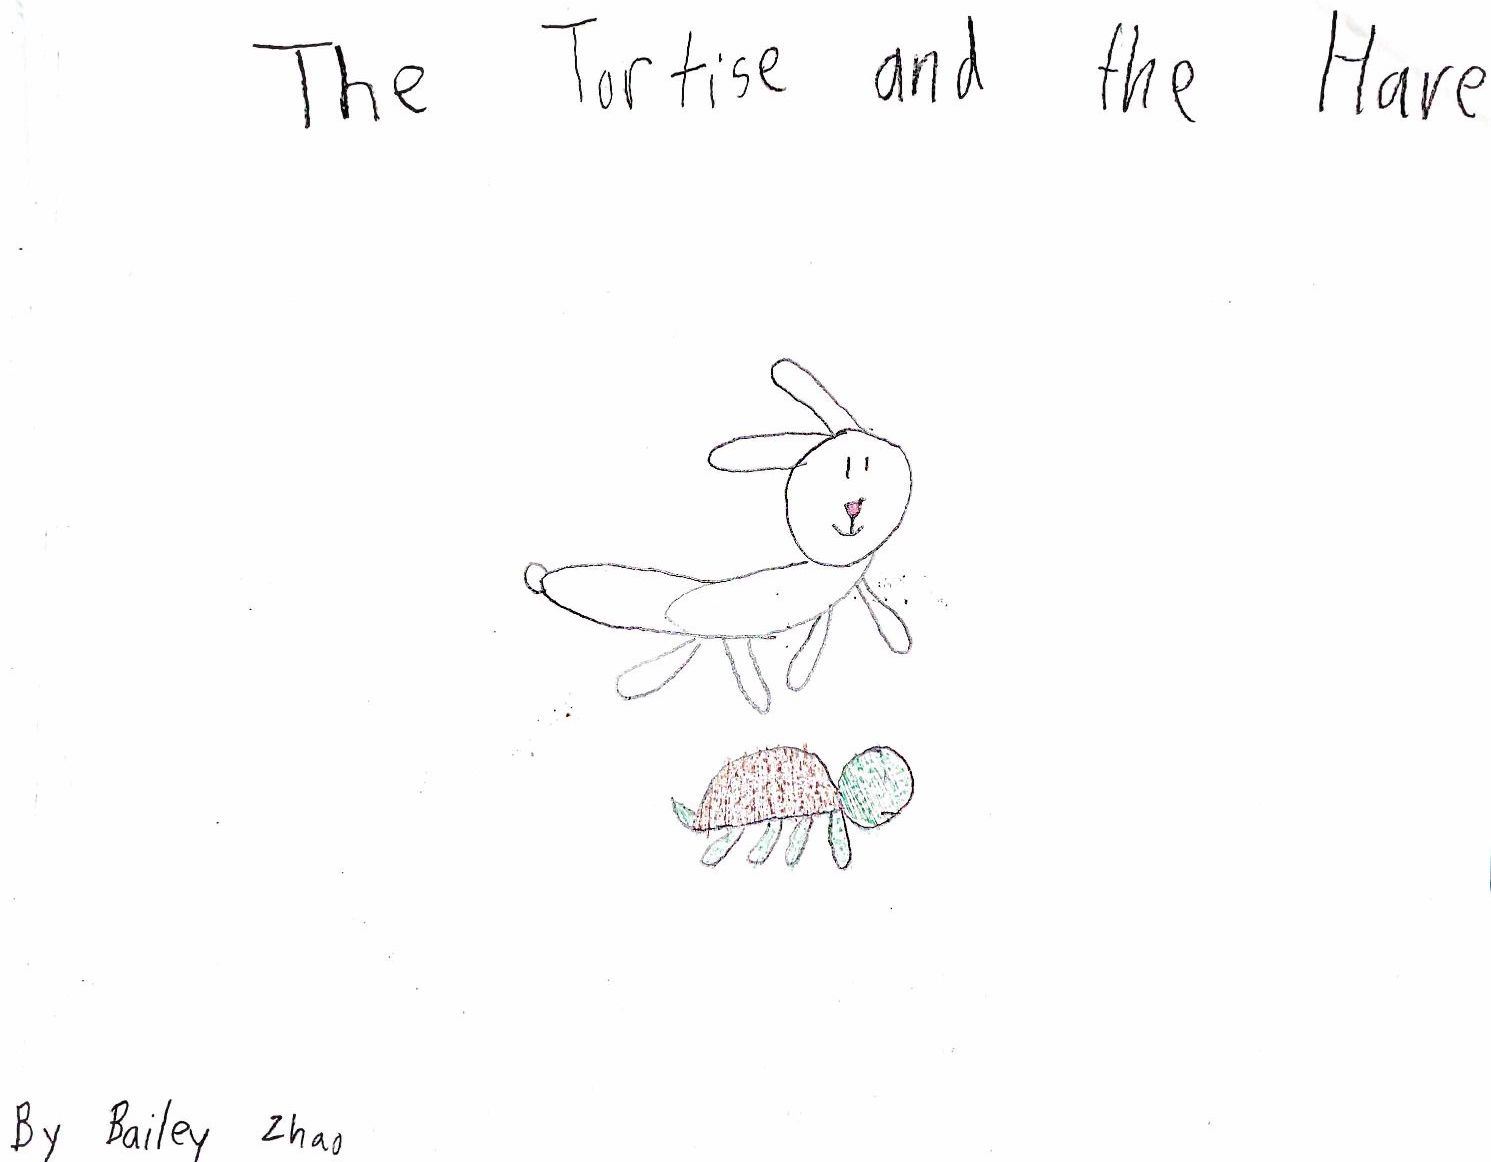 The Tortise and the Hare
By Bailey Zhao